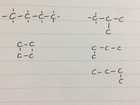 -C-C-C-C-
-C-C-C-
C
C-C
C-C
C-C-C
C
C-C-C
C